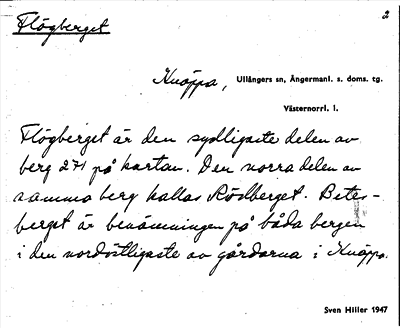 Flögberget
2
Knäppa, Ullångers sn, Ångermanl. s. doms. tg.
Västernorrl. l.
Flögberget är den sydligaste delen av
berg 271 på kartan. Den norra delen av
samma berg kallas Rödberget. Betes-
berget är benämningen på båda bergen
i den nordöstligaste av gårdarna i Knäppa.
Sven Hiller 1947